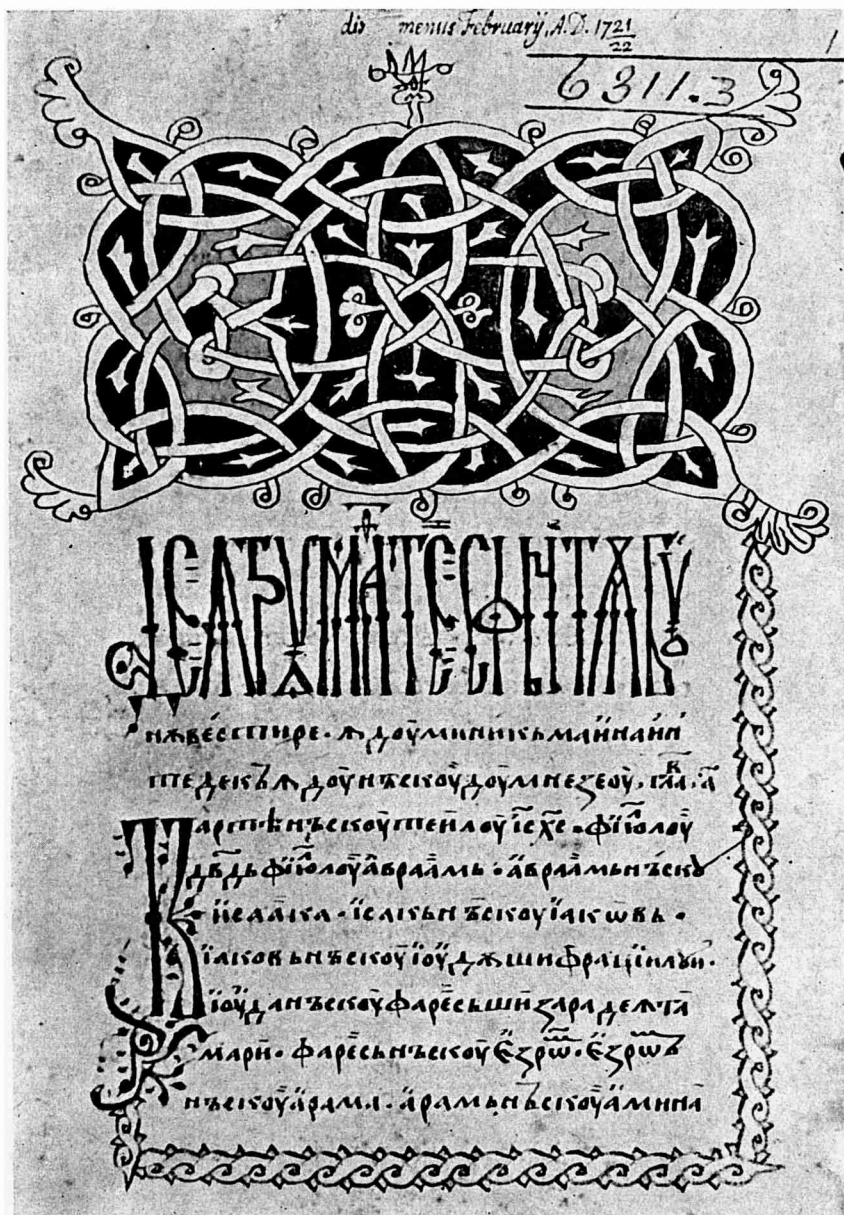 menus Februarij, A.D. 1721/22
1
6311.3
МАТЕ СФЫНТѪ ЕѴ
вестире · ѫ доуминикь маи наин
те де ѫ доу нъскоу доумнезеоу · гла · а
Картѣ нъскоутеи лоу іс хс · фїюлоу
двдь фїюлоу авраамь · авраамь нъску
исаака · исакь нъскоу їакѡвь ·
їаковь нъскоу їоудѫ ши фрацїи луи ·
їоуда нъскоу фаресь ши зара де ѫ та
мари · фаресь нъскоу єзрѡм · єзрѡм
нъскоу арама · арамь нъскоу амина